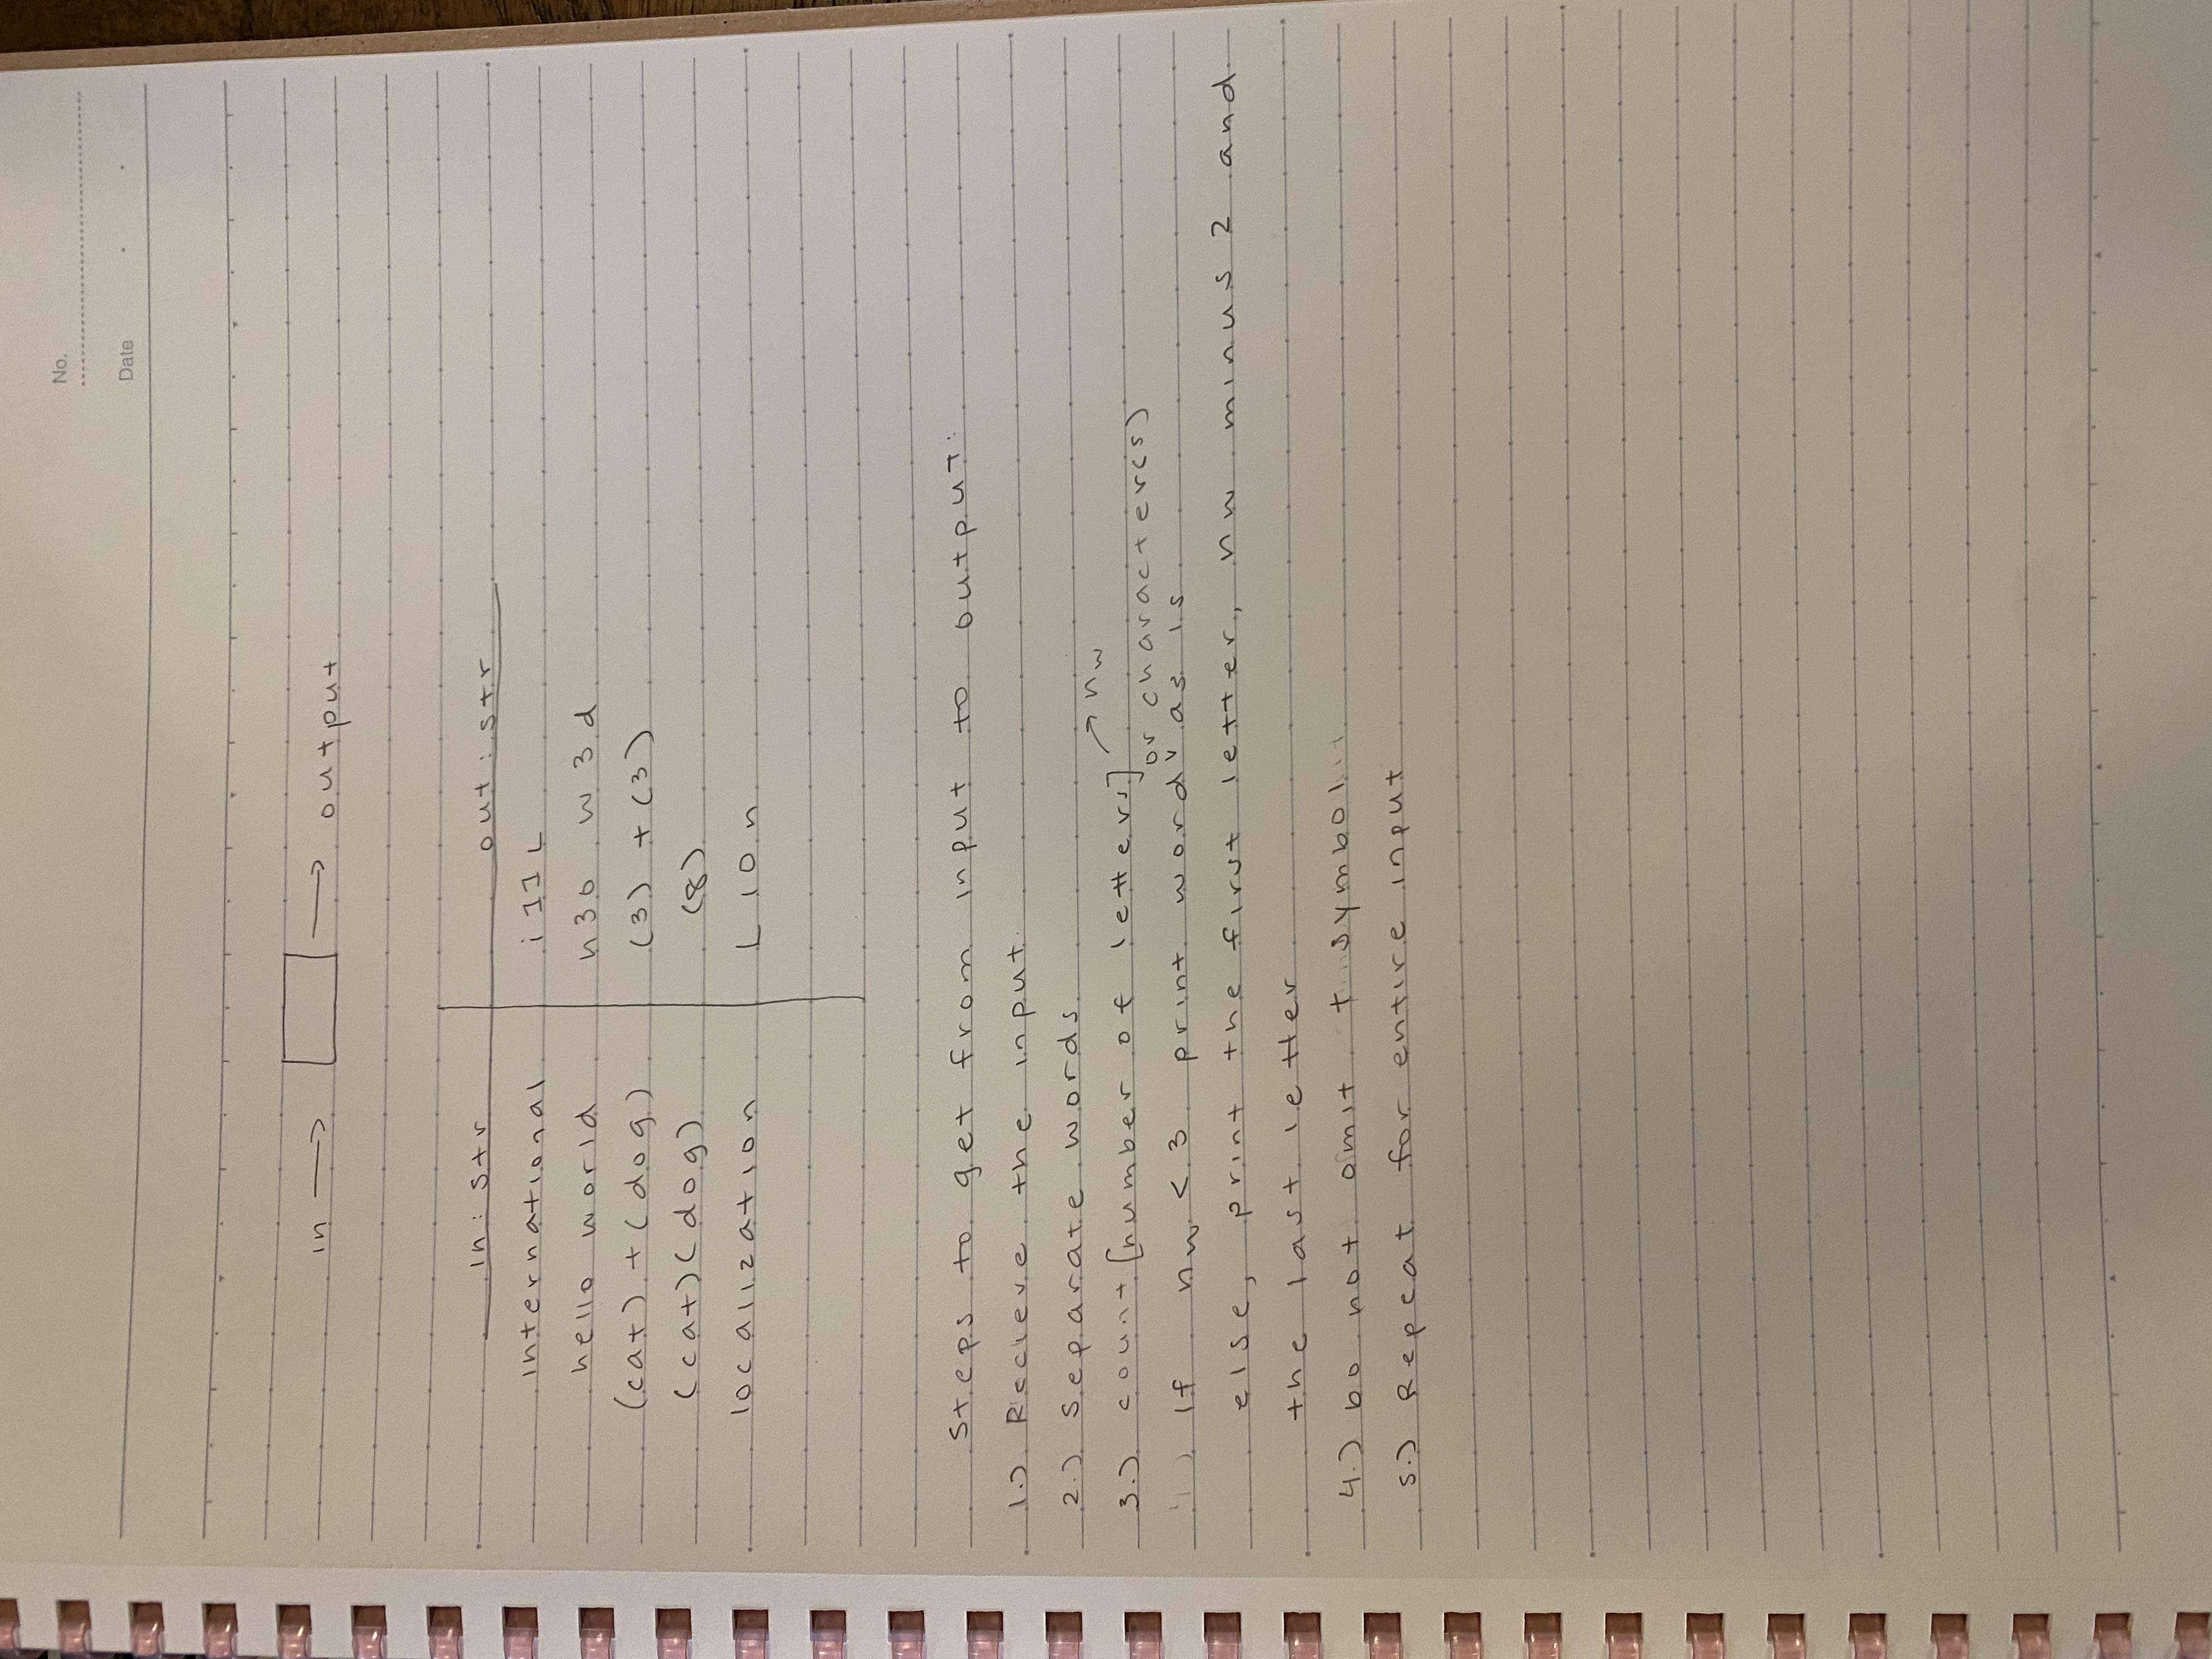 No.
Date
in → output
in : str out : str
international i11L
hello world h3o w3d
(cat) + (dog) (3) + (3)
(cat)(dog) (8)
localization L10n
Steps to get from input to output:
1.) Recieve the input
2.) Separate words
3.) count [number of letters] → nw
or character(s)
4.) If nw < 3 print word v as is
else, print the first letter, nw minus 2 and
the last letter
4.) Do not omit + symbol
5.) Repeat for entire input